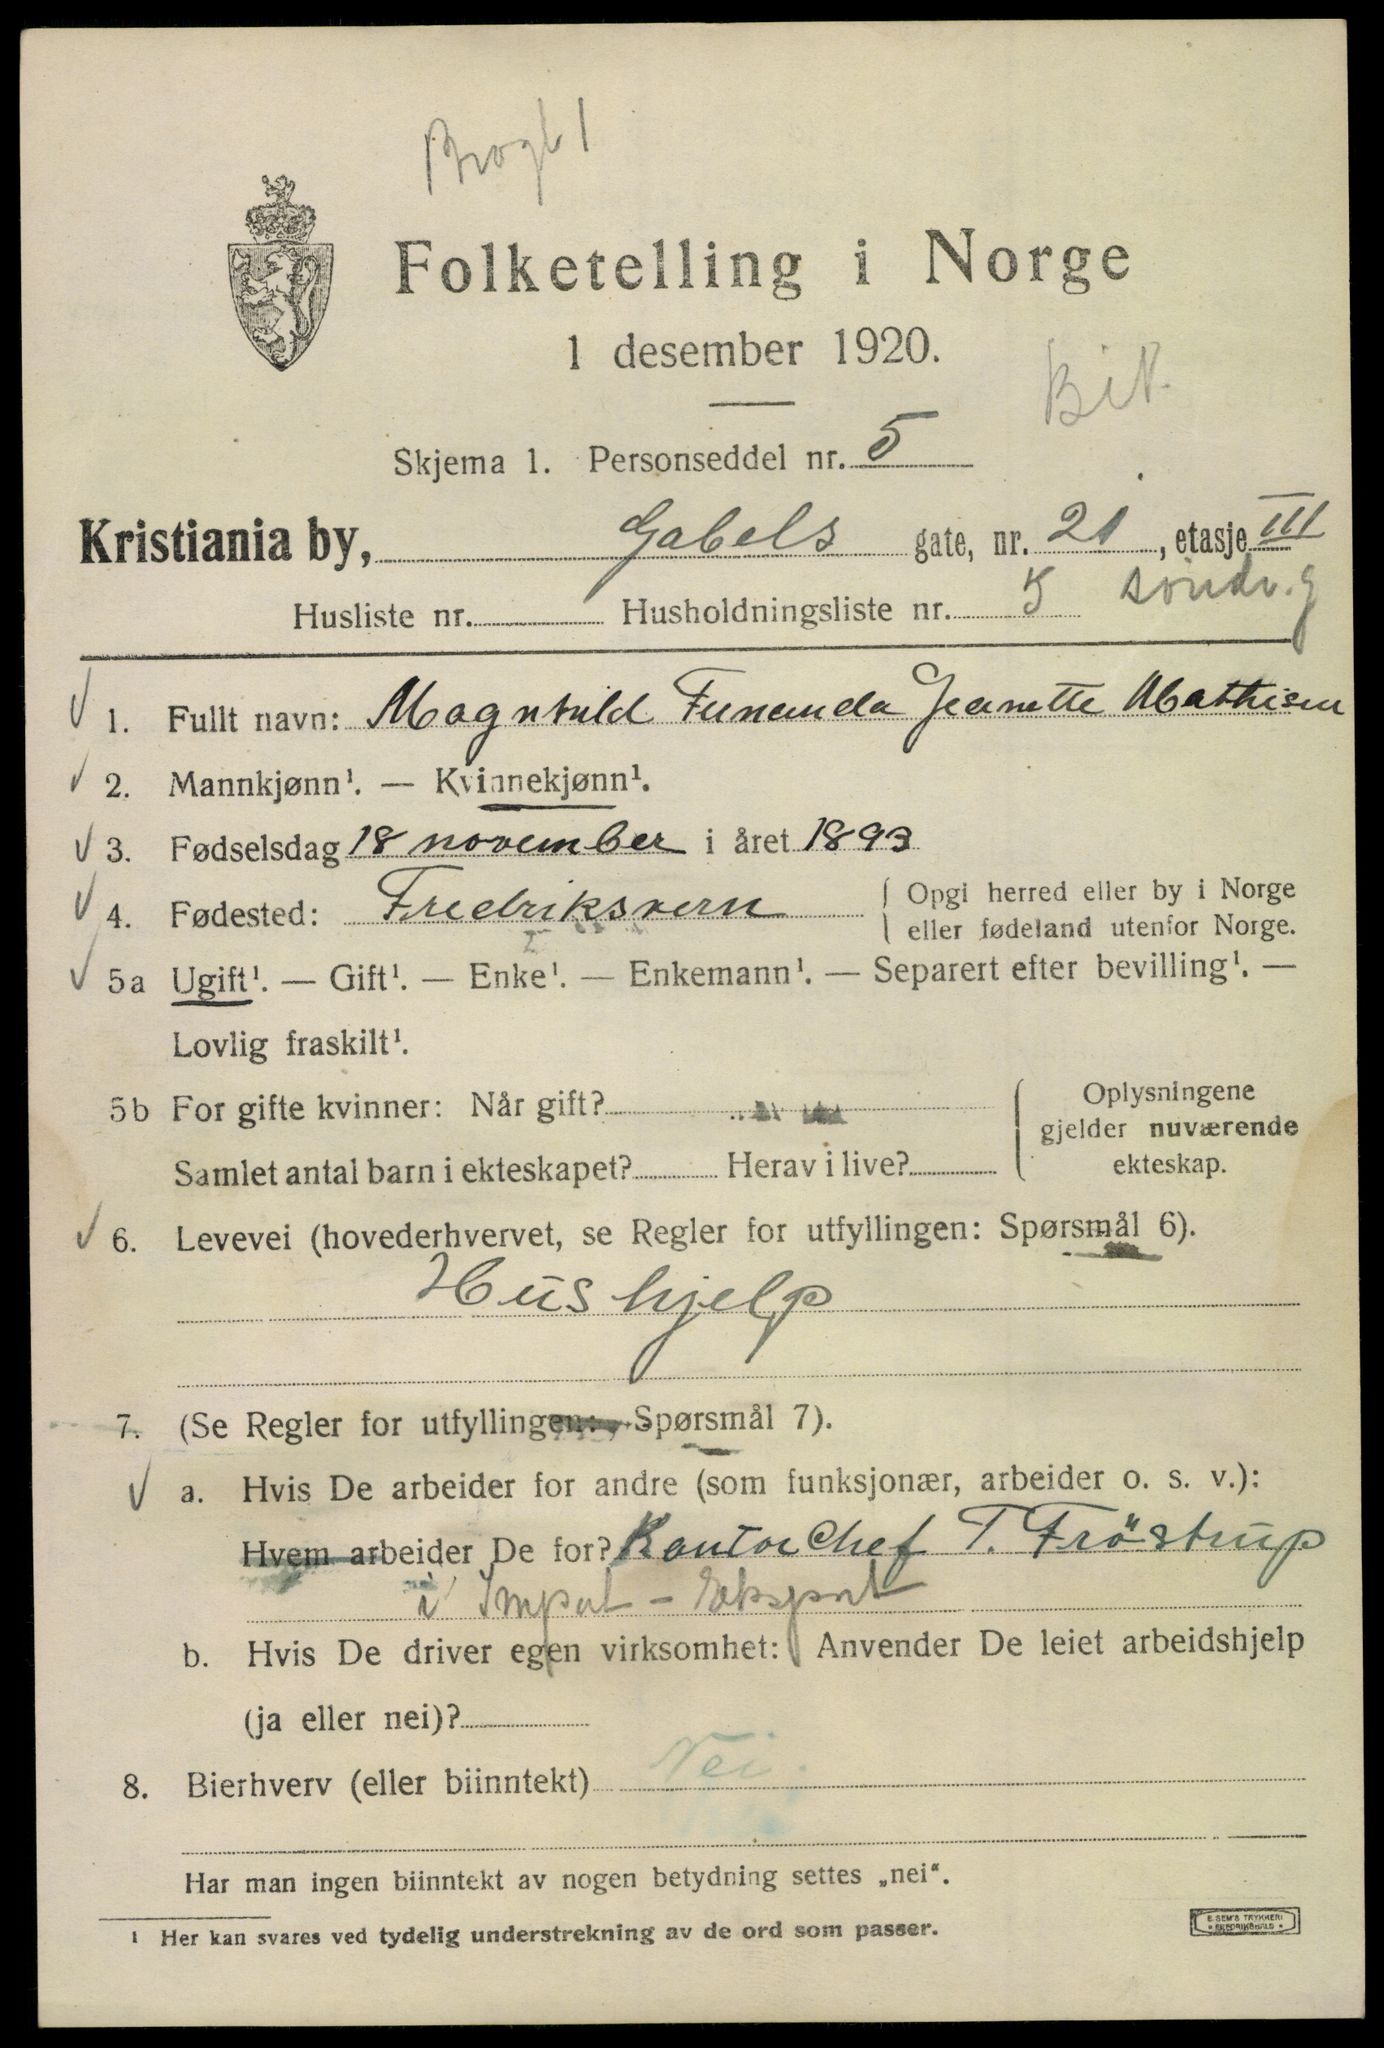 Folketelling i Norge
1 desember 1920.
Skjema 1. Personseddel nr. 5
Kristiania by, Gabels gate, nr. 21, etasje III
Husliste nr. Husholdningsliste nr. 5
1. Fullt navn: Magnhild Jeanette Mathisen
2. Mannkjønn¹. — Kvinnekjønn¹.
3. Fødselsdag 18 november i året 1893
4. Fødested: Fredriksvern { Opgi herred eller by i Norge
eller fødeland utenfor Norge.
5a Ugift¹. — Gift¹. — Enke¹. — Enkemann¹. — Separert efter bevilling¹. —
Lovlig fraskilt¹.
5b For gifte kvinner: Når gift? { Oplysningene
gjelder nuværende
Samlet antal barn i ekteskapet? Herav i live? ekteskap.
6. Levevei (hovederhvervet, se Regler for utfyllingen: Spørsmål 6).
Hushjelp
7. (Se Regler for utfyllingen: Spørsmål 7).
a. Hvis De arbeider for andre (som funksjonær, arbeider o. s. v.):
Hvem arbeider De for? Kontorchef T. Fröstrup
i Import - Eksport
b. Hvis De driver egen virksomhet: Anvender De leiet arbeidshjelp
(ja eller nei)?
8. Bierhverv (eller biinntekt) Nei.
Har man ingen biinntekt av nogen betydning settes „nei“.
¹ Her kan svares ved tydelig understrekning av de ord som passer.
E. SEM'S TRYKKERI
FREDRIKSHALD